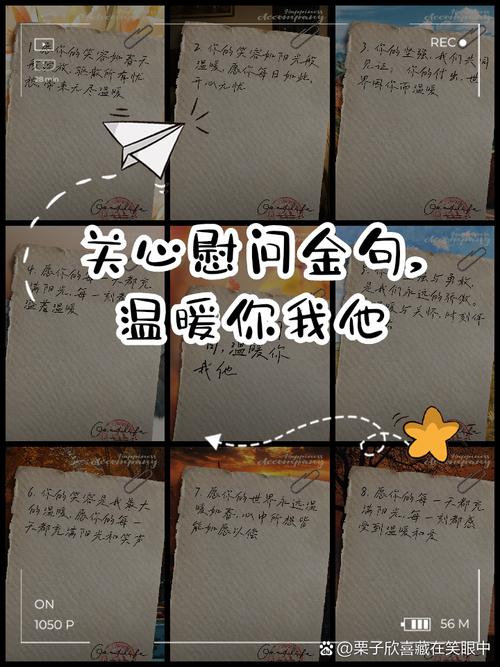 Happiness
Accompany
REC
28 min
1. 愿你的笑容如春天
般绽放，驱散所有忧
愁，带来无尽温暖
2. 你的笑容如阳光般
温暖，愿你每日如此，
开心无忧
3. 你的坚强，我们共同
见证，你的付出，世
界因你而温暖
关心慰问金句，
温暖你我他
4. 愿你的每一天都充
满阳光，每一刻都
溢着温暖
强与勇敢，
是我们永远的骄傲。
与关怀，时刻伴
句，温暖你
我他
Happiness
Accompany
6. 你的笑容是我最大
的温暖，愿你的每一
天都充满阳光和笑声
7. 愿你的世界永远温
暖如春，心中所想皆
能如愿以偿
8. 愿你的每一天都充
满阳光，每一刻都感
受到温暖和爱
ON
1050 P
56 M
@栗子欣喜藏在笑眼中